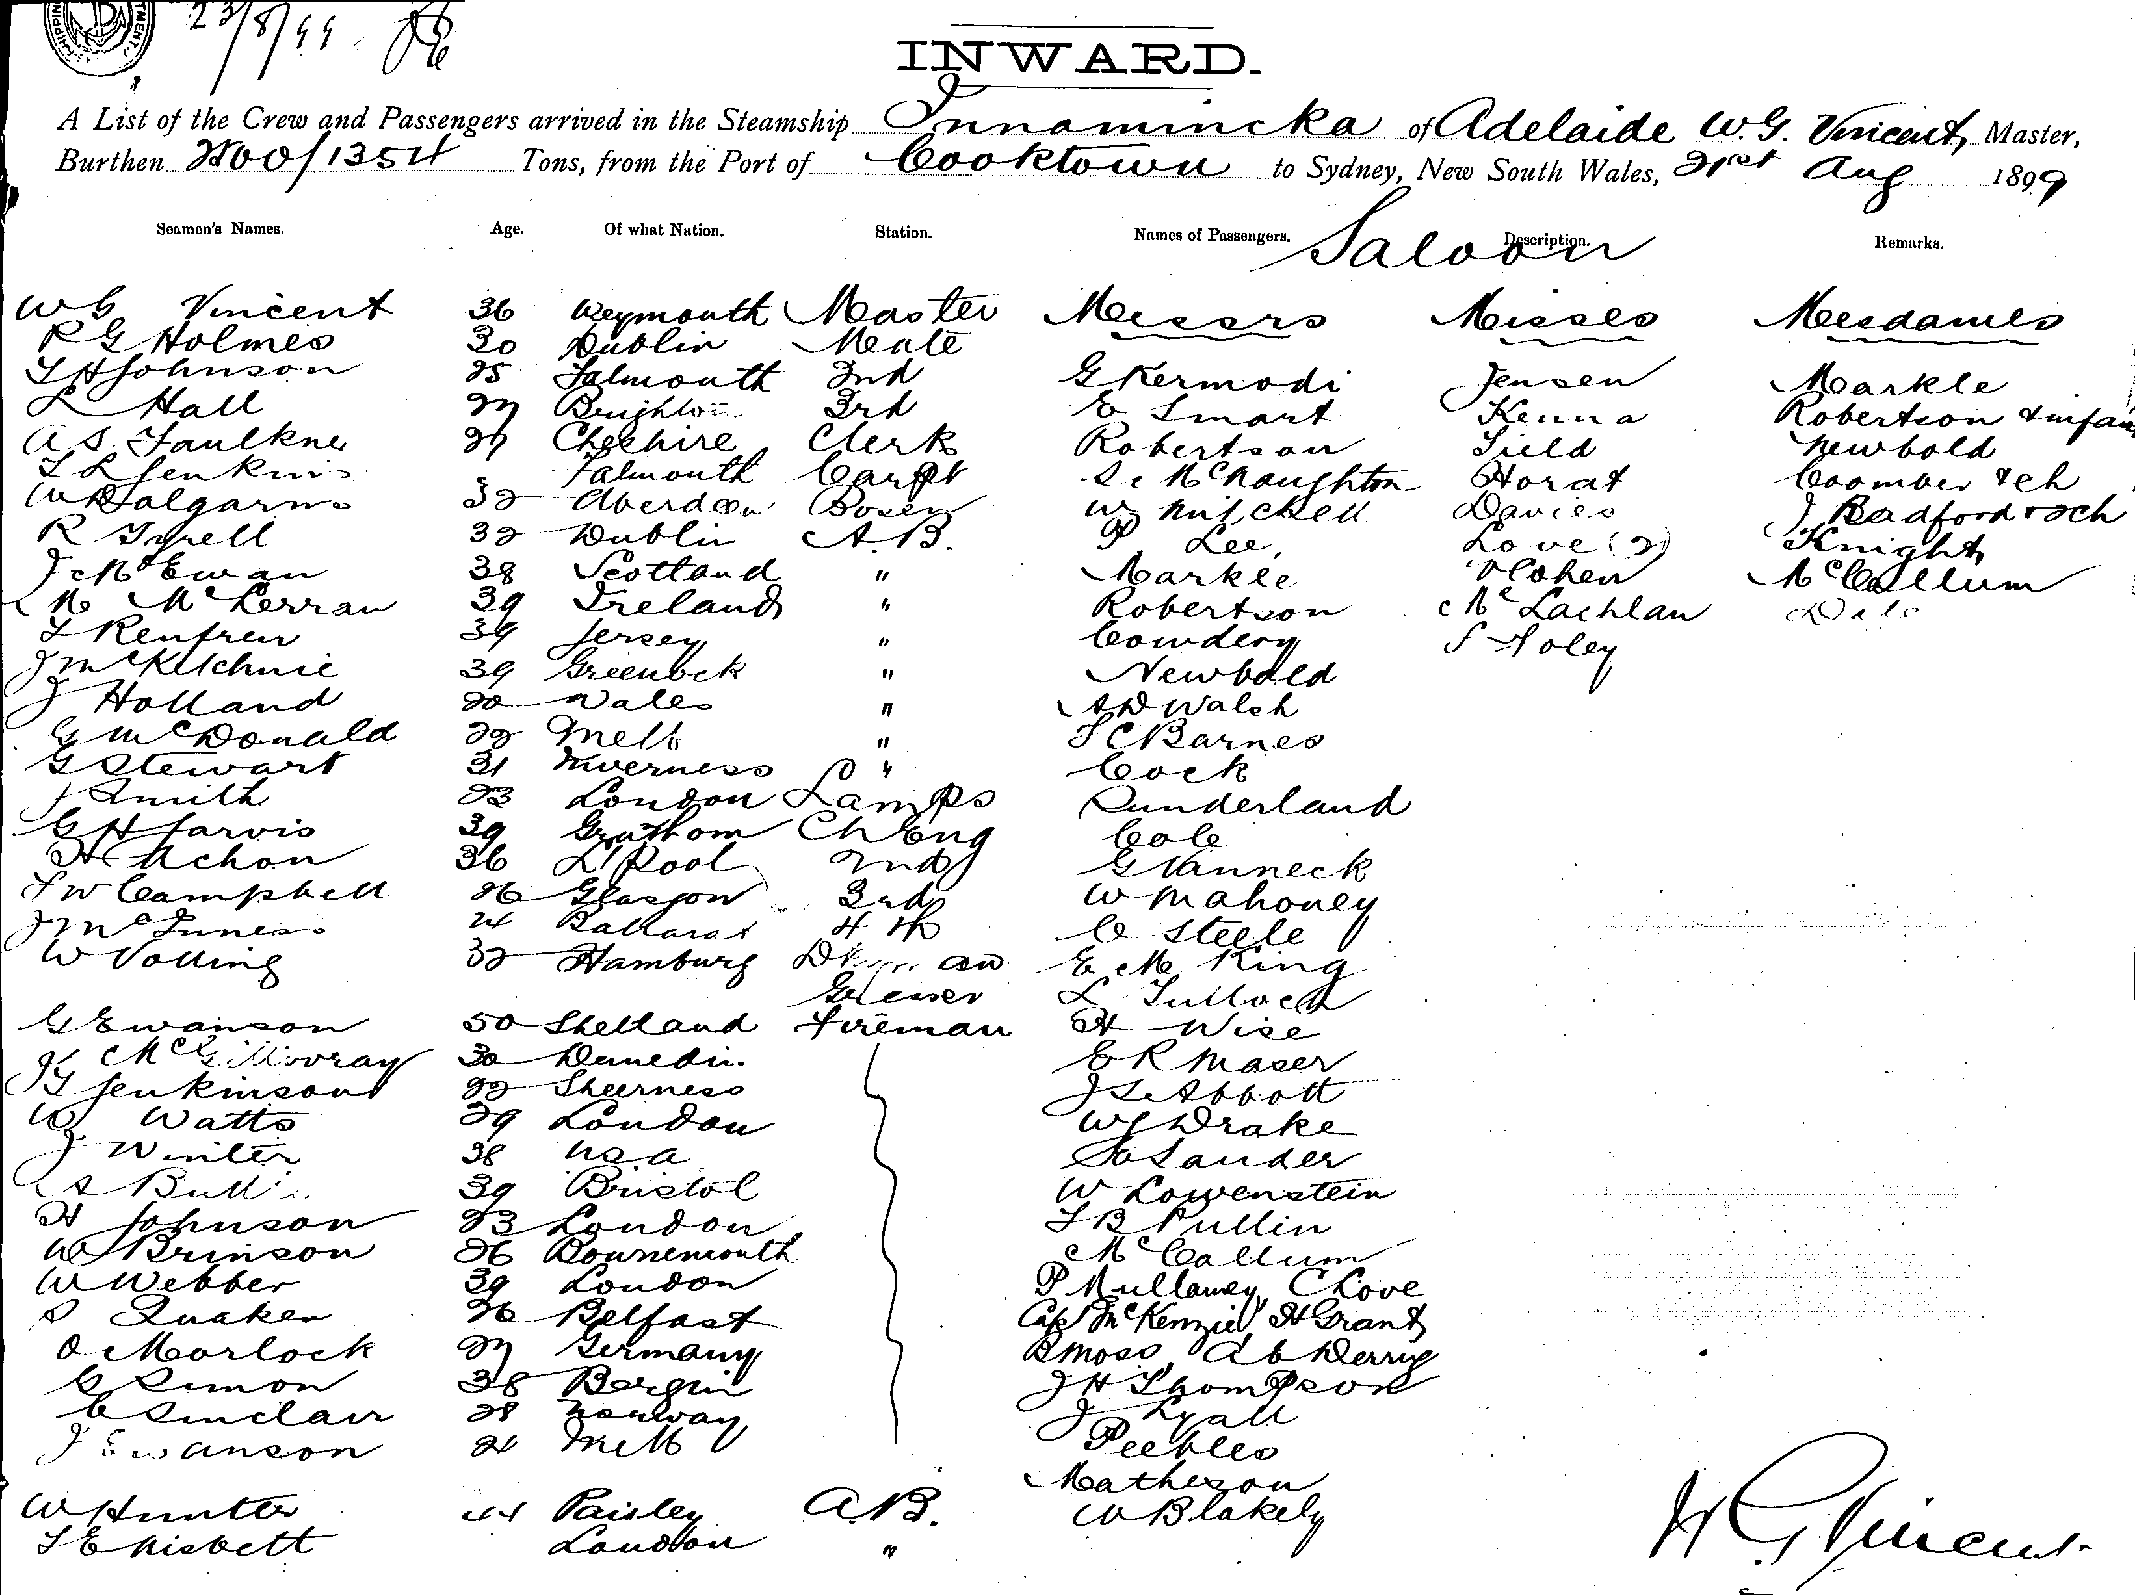 23/8/99
INWARD.
A List of the Crew and Passengers arrived in the Steamship Innamincka of Adelaide W.G. Vincent, Master,
Burthen 2500/1354 Tons, from the Port of Cooktown to Sydney, New South Wales, 21st Aug 1899
Seamen's Names. Age. Of what Nation. Station. Names of Passengers. Description. Remarks.
Saloon
W G Vincent 36 Weymouth Master Messrs Misses Mesdames
R G Holmes 30 Dublin Mate
T H Johnson 25 Falmouth 2nd G Kermodi Jensen Markle
L Hall 27 Brighton 3rd E Smart Kenna Robertson & infan
A S Faulkner Cheshire Clerk Robertson Field Newbold
T L Jenkins Falmouth Carptr McNaughton Horat Coomber & ch
W Dalgarno 32 Aberdeen Bosen W Mitchell Davies J Bradford & ch
R Tyrell 32 Dublin A.B. P Lee, Love (2) Knight
J McEwan 38 Scotland " Markle Cohen McCallum
M McLerran 39 Ireland " Robertson McLachlan
T Renfrew 39 Jersey " Cowdery S Foley
J McKitchnie 39 Greenock " Newbold
J Holland 20 Wales " A D Walsh
G McDonald 22 Melb " T C Barnes
G Stewart 31 Inverness " Cock
J Smith 23 London Lamps Sunderland
G H Jarvis 39 Ch Eng Cole
H Achon 36 L'Pool 2nd G Vanneck
T W Campbell 26 Glasgow 3rd W Mahoney
J McInnes 24 Ballarat 4th C Steele
W Volling 32 Hamburg E M King
Greaser L Tulloch
G Ewanson 50 Shetland Fireman H Wise
McGillivray 30 Dunedin E R Maser
J Jenkinson 22 Sheerness J L Abbott
W Watts 29 London W J Drake
J Winter 38 USA Sander
39 Bristol W Lowenstein
H Johnson 23 London T B Pullin
W Brinson 26 Bournemouth McCallum
W Webber 39 London P Mullaney C Love
S Quaken 26 Belfast Cap McKenzie H Grant
O Morlock 27 Germany B Moss
G Simon 38 Bergin J H Thompson
C Sinclair 28 Norway J Lyall
J Swanson 21 Melb Peebles
Matheson
W Hunter 44 Paisley A.B. W Blakely
T E Nisbett London "
W G Vincent